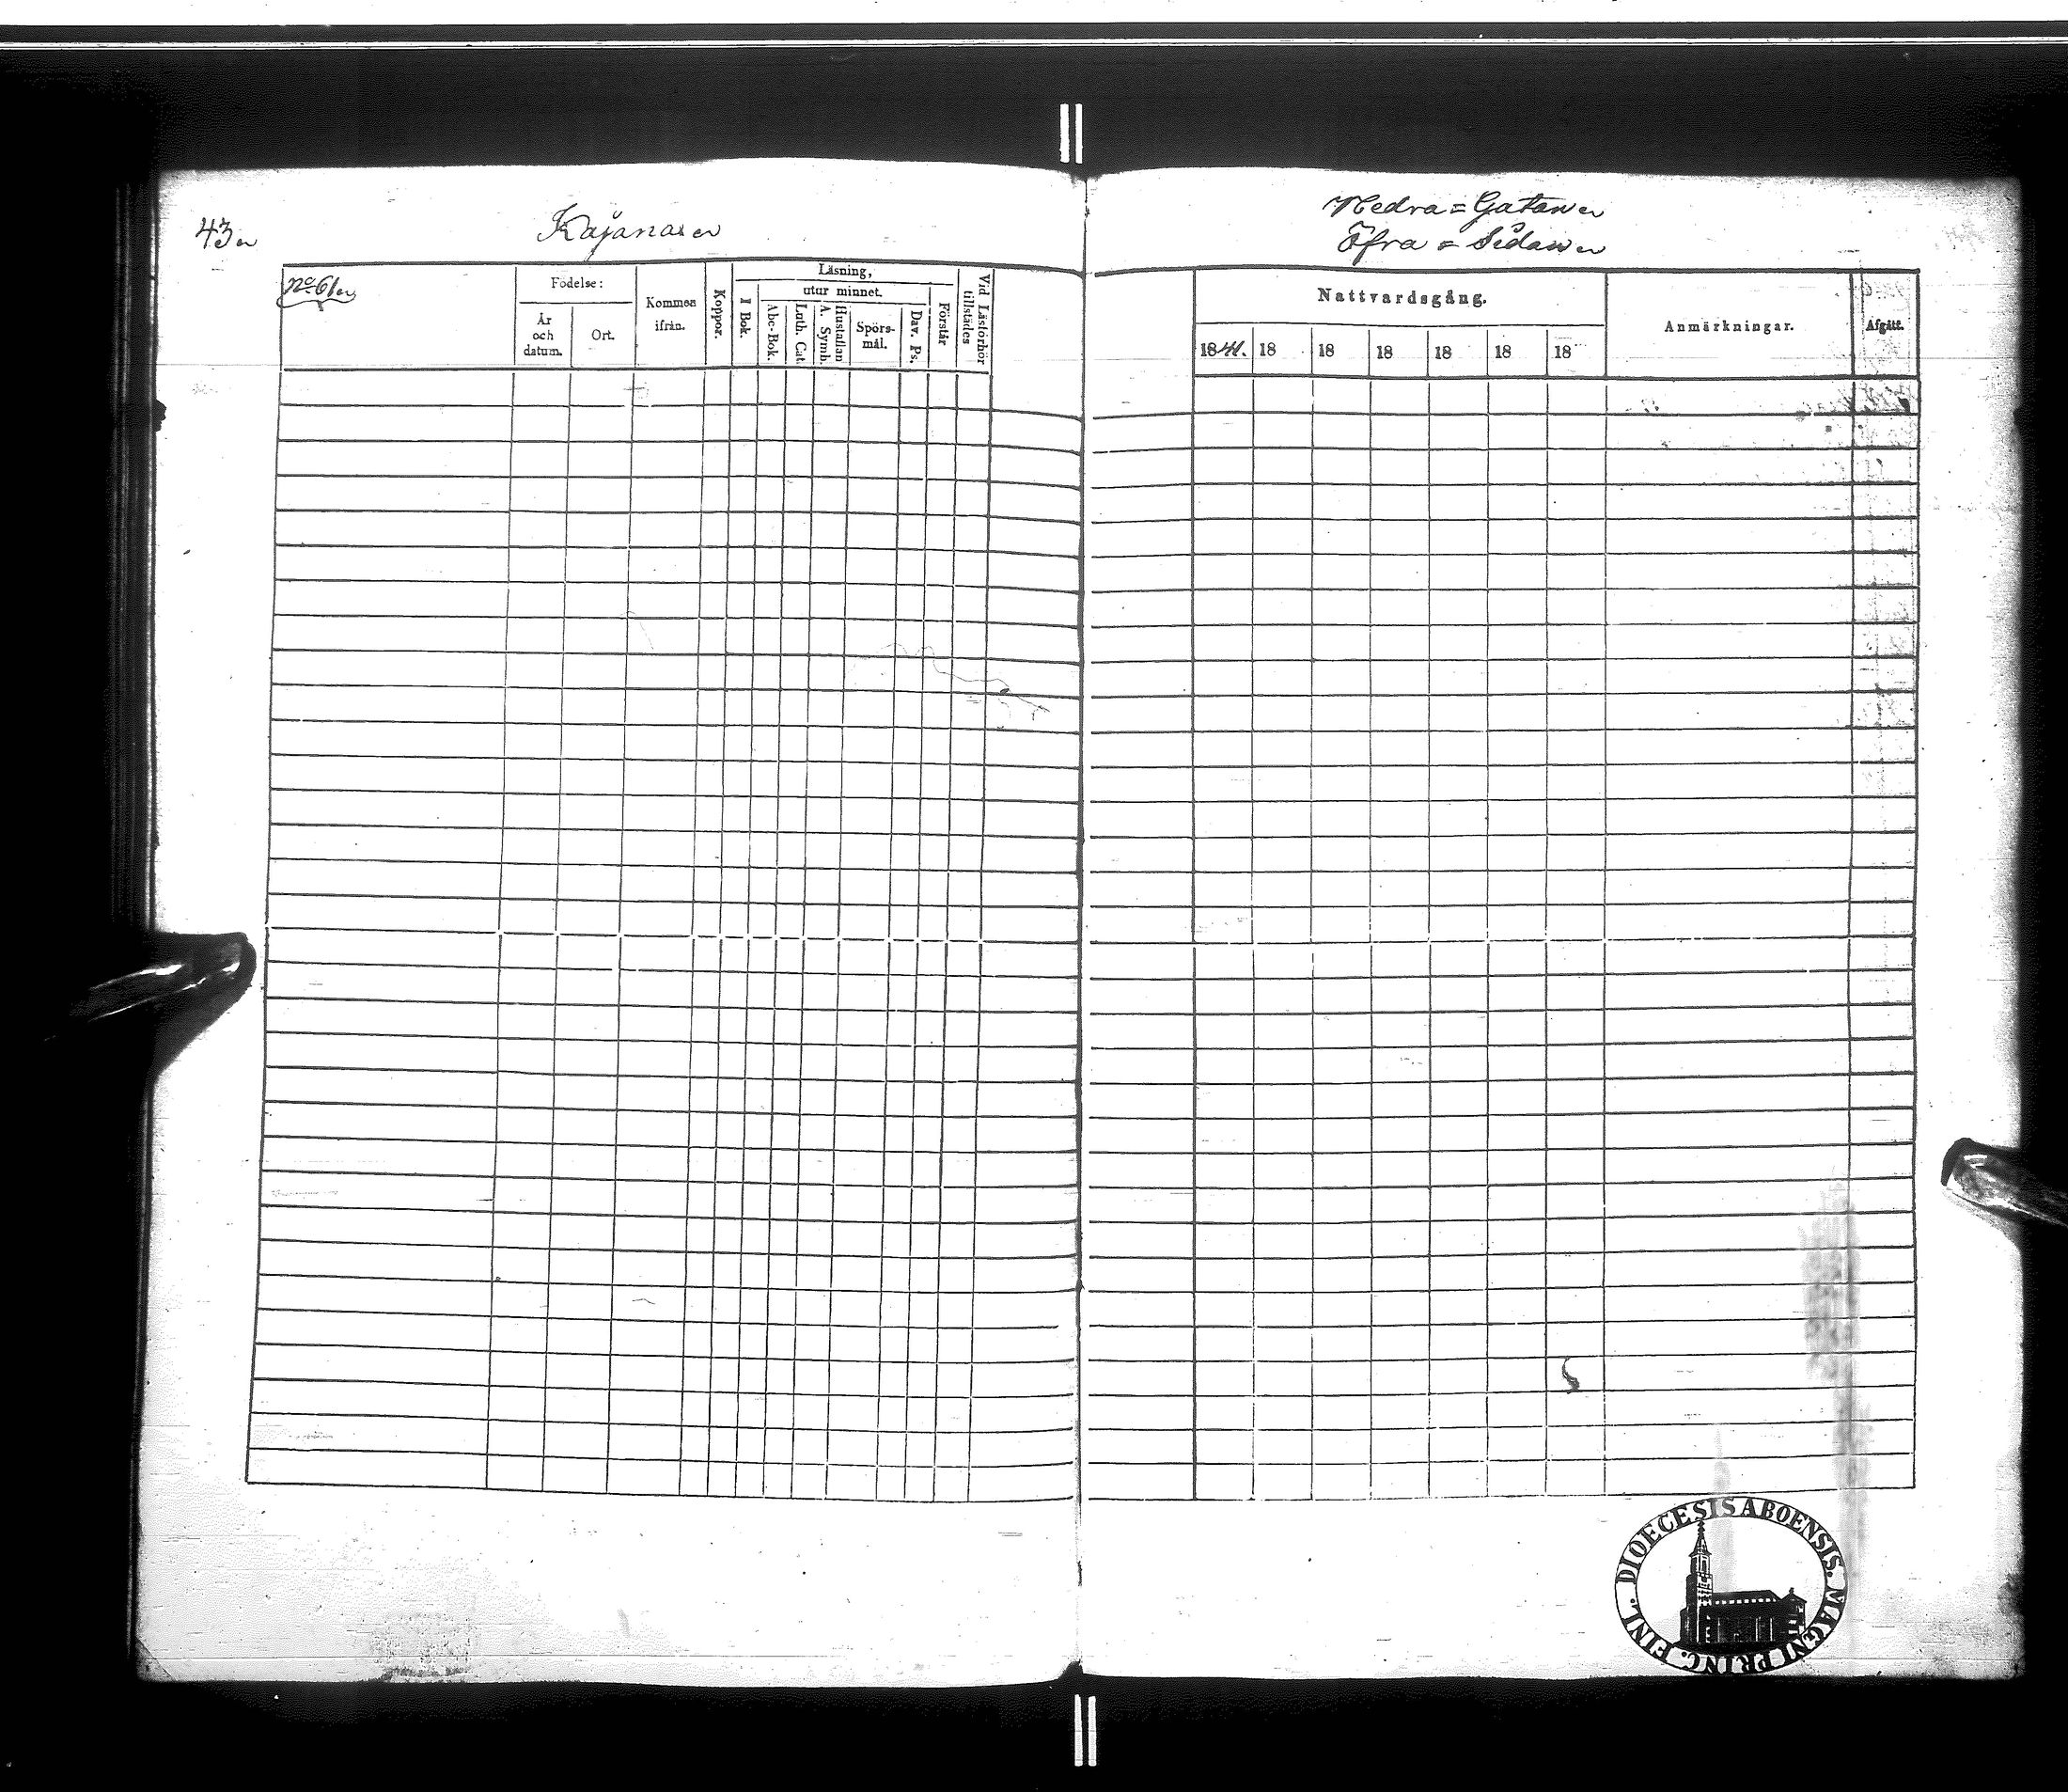 43
Kajanas
Nedra = Gatan
Öfra = Sidan
No 61
Födelse:
År och datum.
Ort.
Kommen ifrån.
Koppor.
Läsning,
I Bok.
utur minnet.
Abc-Bok.
Luth. Cat.
Hustaflan
A. Symb.
Spörs-
mål.
Dav. Ps.
Förstår
Vid Läsförhör
tillstädes
Nattvardsgång.
1841. 18 18 18 18 18 18
Anmärkningar.
Afgått.
DIOECESIS ABOENSIS. MAGNI PRINC. FINL.